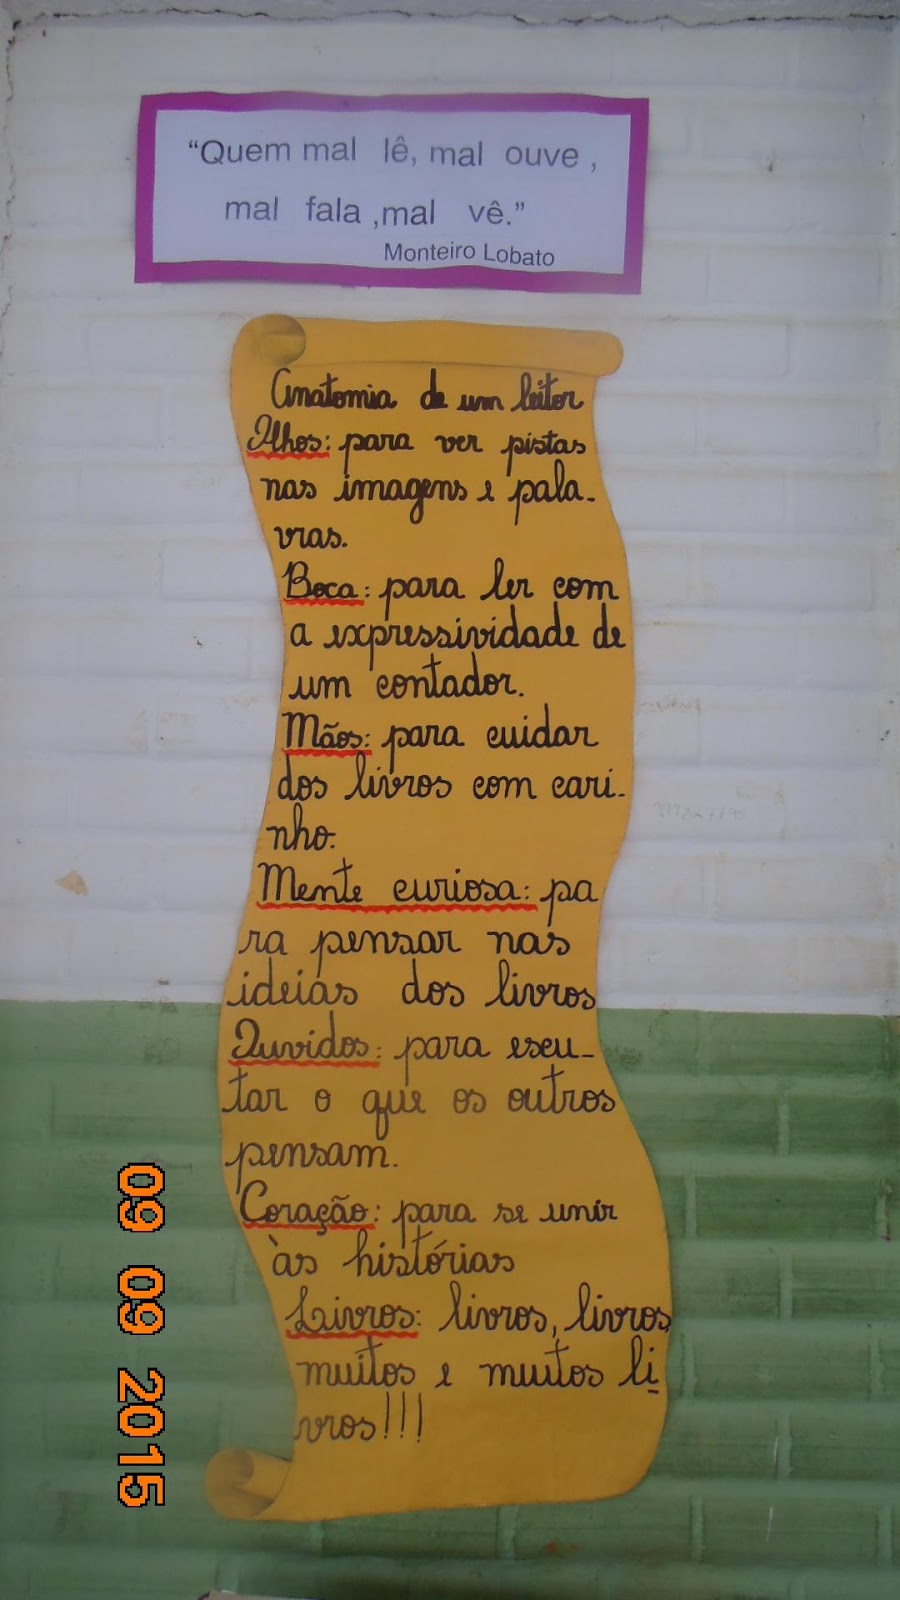 “Quem mal lê, mal ouve ,
mal fala ,mal vê.”
Monteiro Lobato
Anatomia de um leitor
Olhos: para ver pistas
nas imagens e pala-
vras.
Boca: para ler com
a expressividade de
um contador.
Mãos: para cuidar
dos livros com cari-
nho.
Mente curiosa: pa
ra pensar nas
ideias dos livros
Ouvidos: para escu-
tar o que os outros
pensam.
Coração: para se unir
às histórias
Livros: livros, livros,
muitos e muitos li
vros!!!
09 09 2015